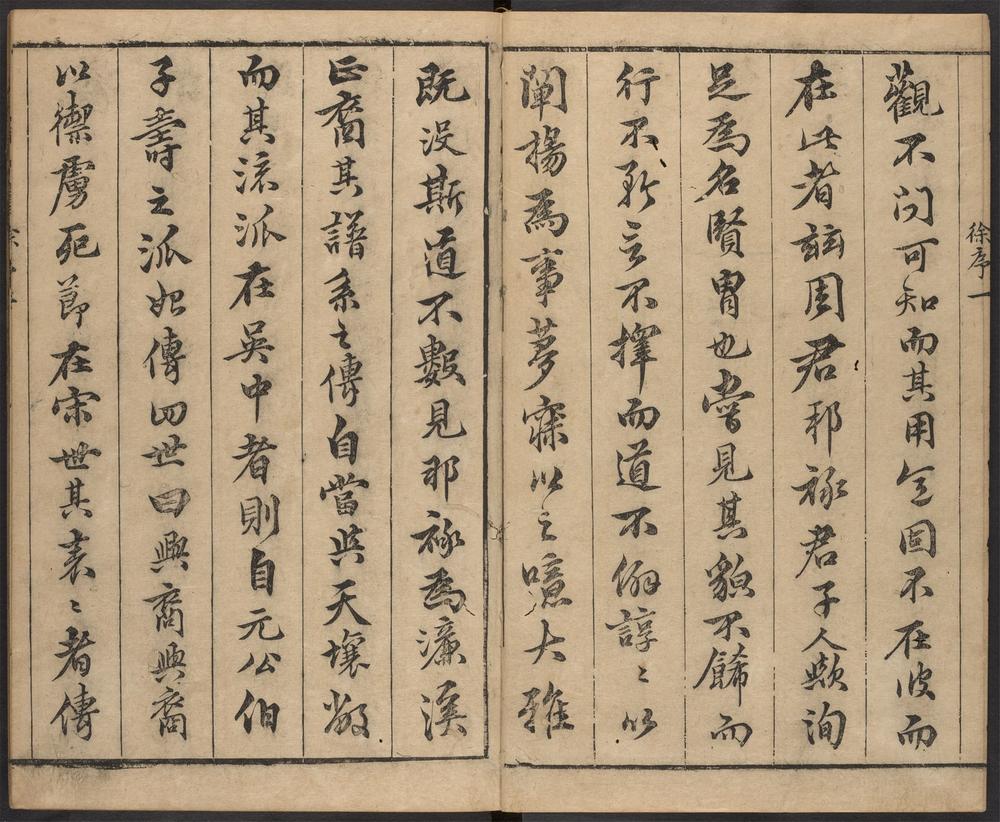 徐序一
觀不問可知而其用心固不在彼而
在此者玆周君邦祿君子人歟洵
足為名賢胄也嘗見其貌不餙而
行不矜言不擇而道不俗諄〻以
闡揚為事夢寐以之噫大雅
既没斯道不數見邦祿為濂溪
正裔其譜系之傳自當與天壤敝
而其流派在吳中者則自元公伯
子壽之派始傳四世曰興裔興裔
以禦虜死節在宋世其表〻者傳